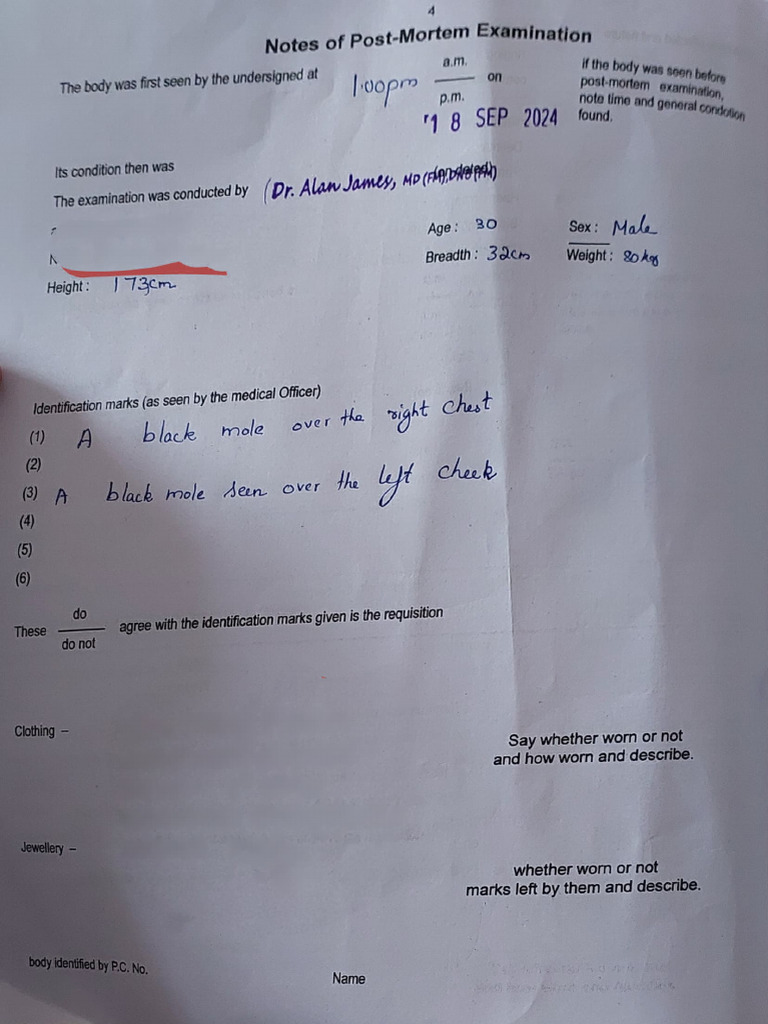 4
Notes of Post-Mortem Examination
The body was first seen by the undersigned at 1.00pm a.m. p.m. on '1 8 SEP 2024
if the body was seen before
post-mortem examination,
note time and general condotion
found.
Its condition then was
The examination was conducted by (Dr. Alan James, MD (FM),
Age : 30 Sex : Male
N
Breadth : 32cm Weight : 80 kgs
Height : 173cm
Identification marks (as seen by the medical Officer)
(1) A black mole over the right chest
(2)
(3) A black mole seen over the left cheek
(4)
(5)
(6)
These do do not agree with the identification marks given is the requisition
Clothing –
Say whether worn or not
and how worn and describe.
Jewellery –
whether worn or not
marks left by them and describe.
body identified by P.C. No. Name